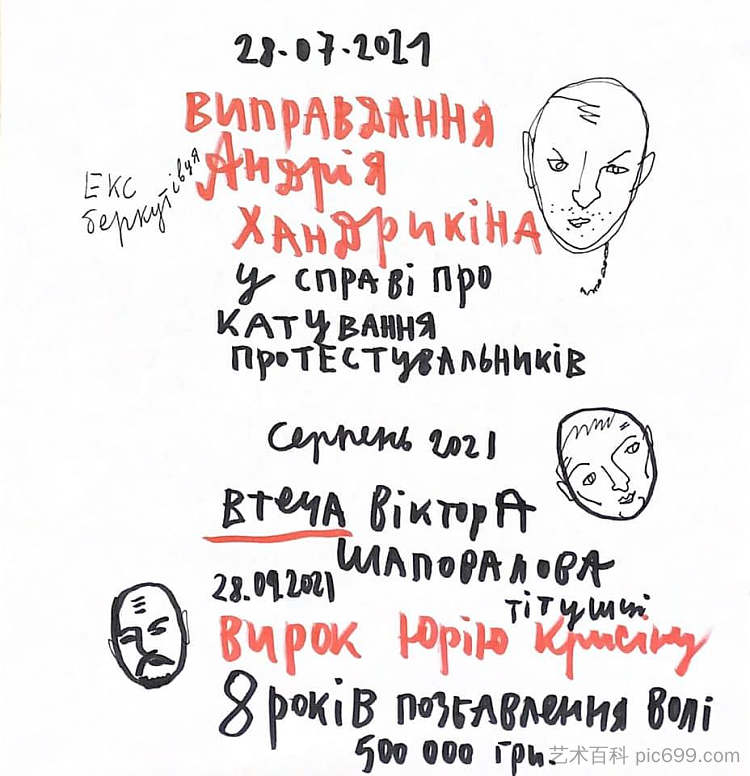 28.07.2021
ВИПРАВДАННЯ
Екс
беркутівця
Андрія
ХАНДРИКІНА
у СПРАВІ ПРО
КАТУВАННЯ
ПРОТЕСТУВАЛЬНИКІВ
Серпень 2021
ВТЕЧА ВІКТОРА
ШАПОРАЛОВА
28.09.2021
тітушці
ВИРОК Юрію Крисіну
8 років позбавлення волі
500 000 грн.
艺术百科 pic699.com